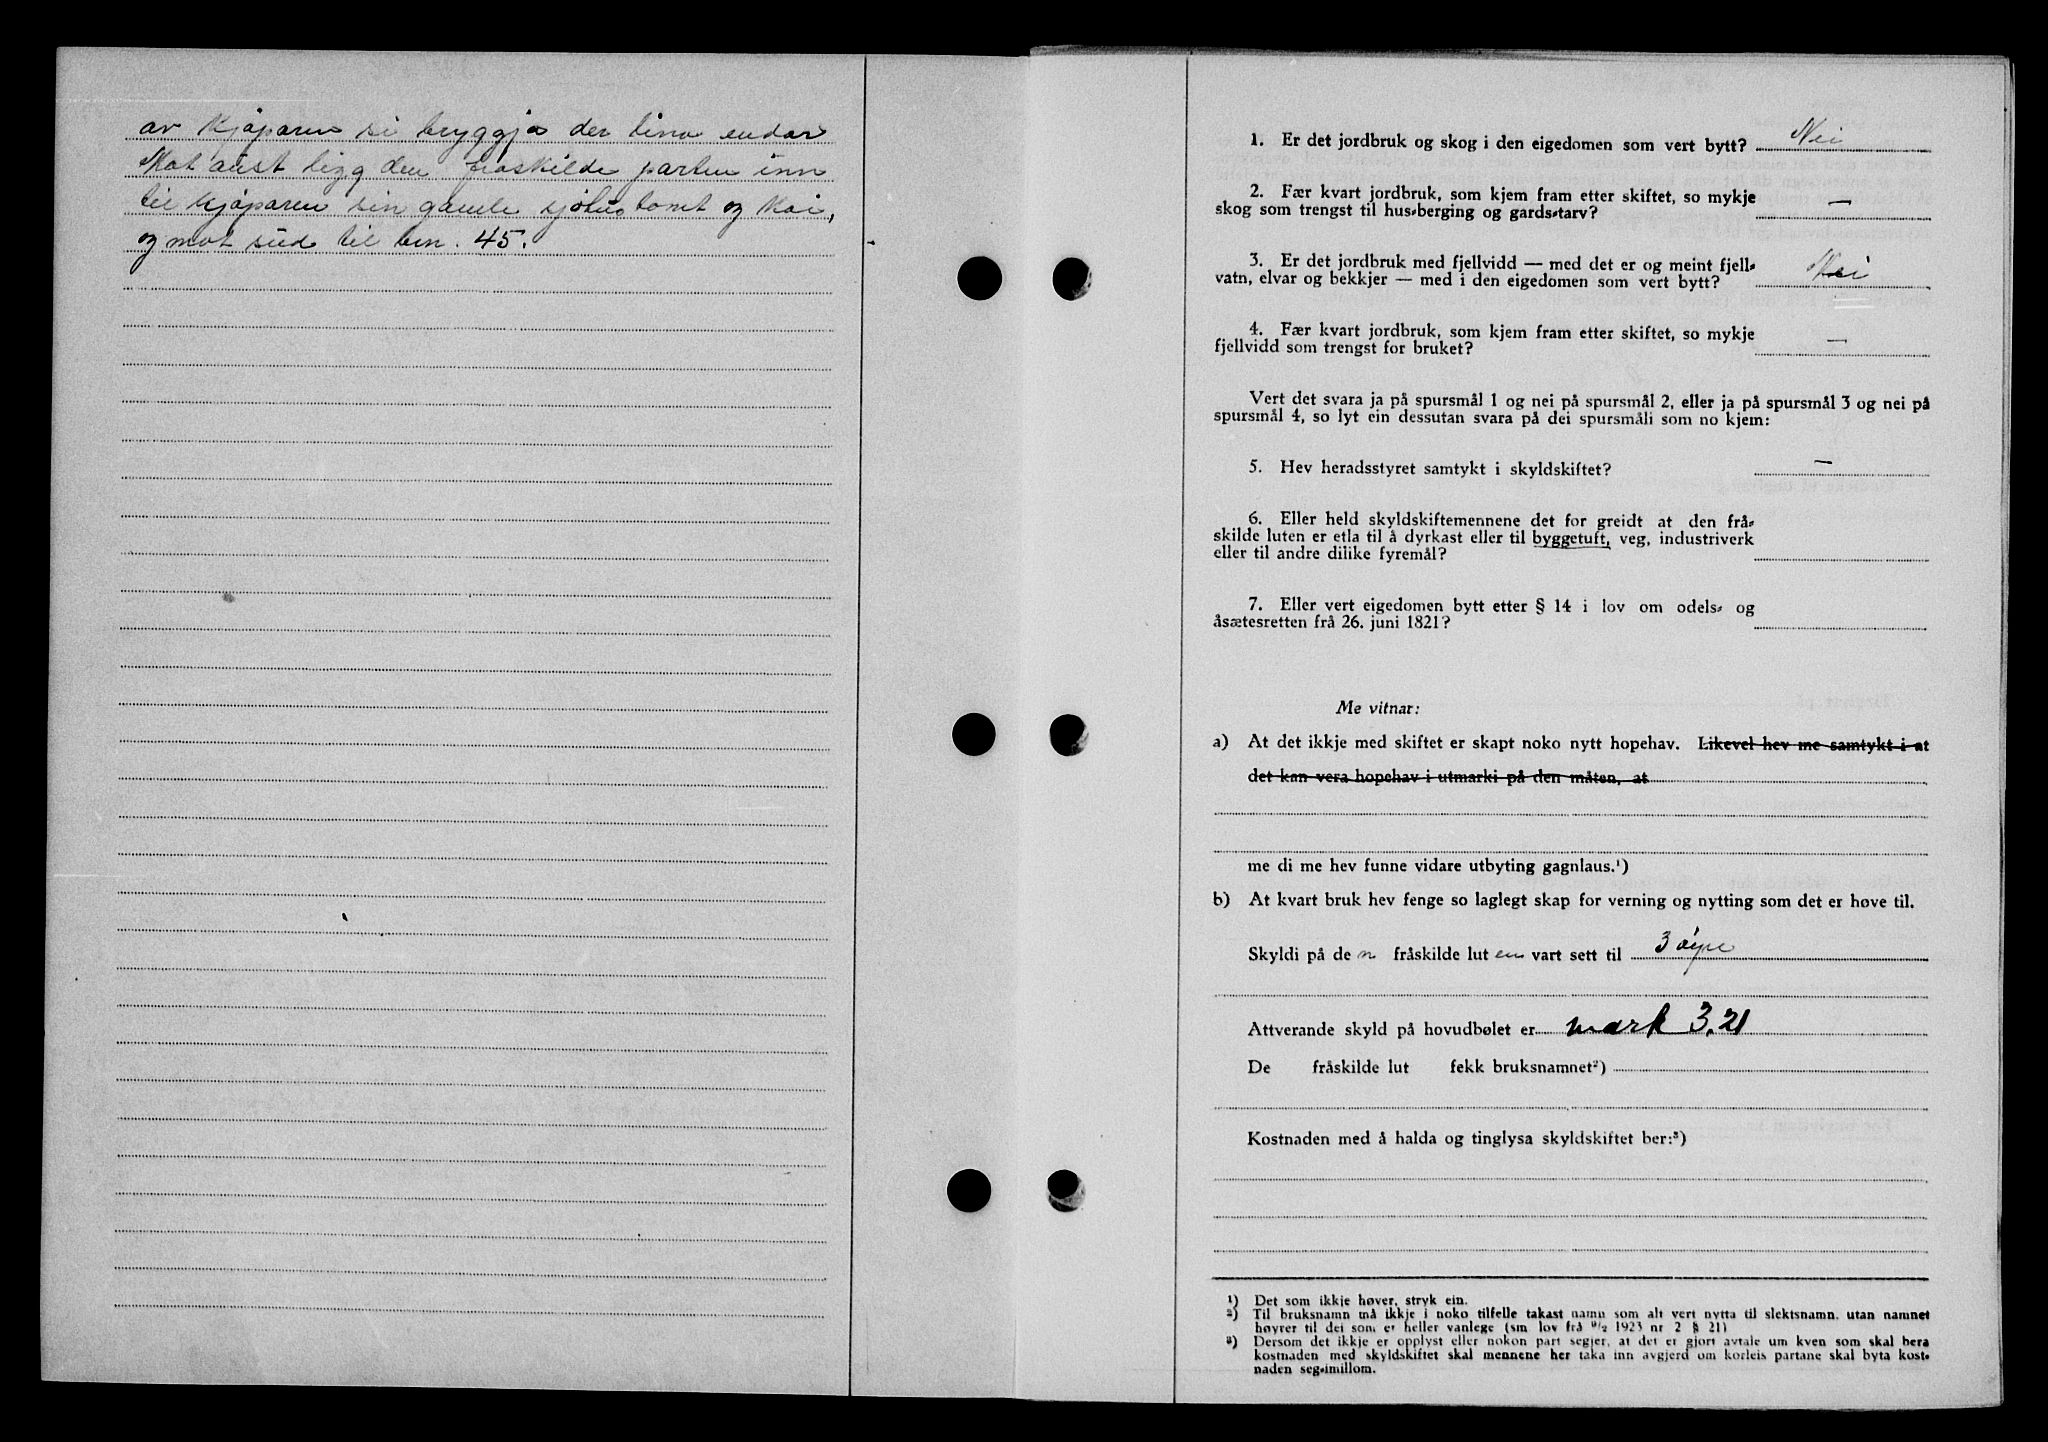 av kjøparen si bryggja der lina endar
Mot aust ligg den fråskilde parten inn
til kjøparen sin gamle sjøhustomt og Kai,
og mot sud til bn. 45.
1. Er det jordbruk og skog i den eigedomen som vert bytt? Nei
2. Fær kvart jordbruk, som kjem fram etter skiftet, so mykje
skog som trengst til hus-berging og gards-tarv? —
3. Er det jordbruk med fjellvidd — med det er og meint fjell-
vatn, elvar og bekkjer — med i den eigedomen som vert bytt? Nei
4. Fær kvart jordbruk, som kjem fram etter skiftet, so mykje
fjellvidd som trengst for bruket? —
Vert det svara ja på spursmål 1 og nei på spursmål 2, eller ja på spursmål 3 og nei på
spursmål 4, so lyt ein dessutan svara på dei spursmåli som no kjem:
5. Hev heradsstyret samtykt i skyldskiftet? —
6. Eller held skyldskiftemennene det for greidt at den frå-
skilde luten er etla til å dyrkast eller til byggetuft, veg, industriverk
eller til andre dilike fyremål?
7. Eller vert eigedomen bytt etter § 14 i lov om odels- og
åsætesretten frå 26. juni 1821?
Me vitnar:
a) At det ikkje med skiftet er skapt noko nytt hopehav. Likevel hev me samtykt i at
det kan vera hopehav i utmarki på den måten, at
me di me hev funne vidare utbyting gagnlaus.¹)
b) At kvart bruk hev fenge so laglegt skap for verning og nytting som det er høve til.
Skyldi på de n fråskilde lut en vart sett til 3 øyre
Attverande skyld på hovudbølet er mark 3.21
De fråskilde lut fekk bruksnamnet²)
Kostnaden med å halda og tinglysa skyldskiftet ber:³)
¹) Det som ikkje høver, stryk ein.
²) Til bruksnamn må ikkje i noko tilfelle takast namn som alt vert nytta til slektsnamn, utan namnet
høyrer til dei som er heller vanlege (sm lov frå ⁹/₂ 1923 nr 2 § 21)
³) Dersom det ikkje er opplyst eller nokon part segjer, at det er gjort avtale um kven som skal bera
kostnaden med skyldskiftet skal mennene her taka inn avgjerd om korleis partane skal byta kost-
naden seg-imillom.